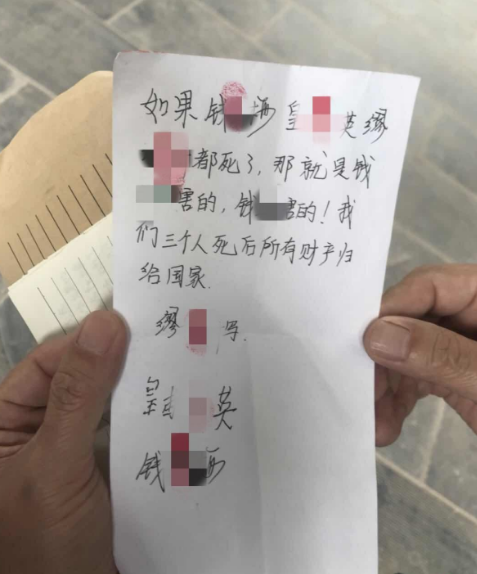 如果钱 西 皇 英缪
都死了，那就是钱
害的，钱 害的！我
们三个人死后所有财产归
给国家.
缪 写.
皇 英
钱 西